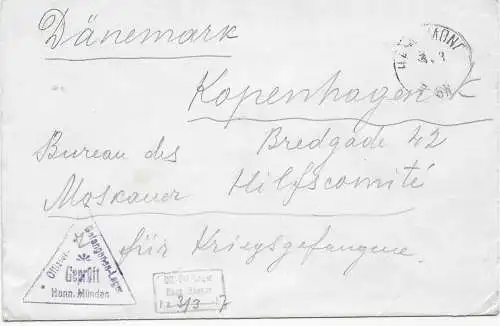 Dänemark
Kopenhagen K
Bredgade 42
Bureau des
Moskauer Hilfscomité
für Kriegsgefangene.
Offizier-Gefangenen-Lager
Geprüft
Hann. Münden